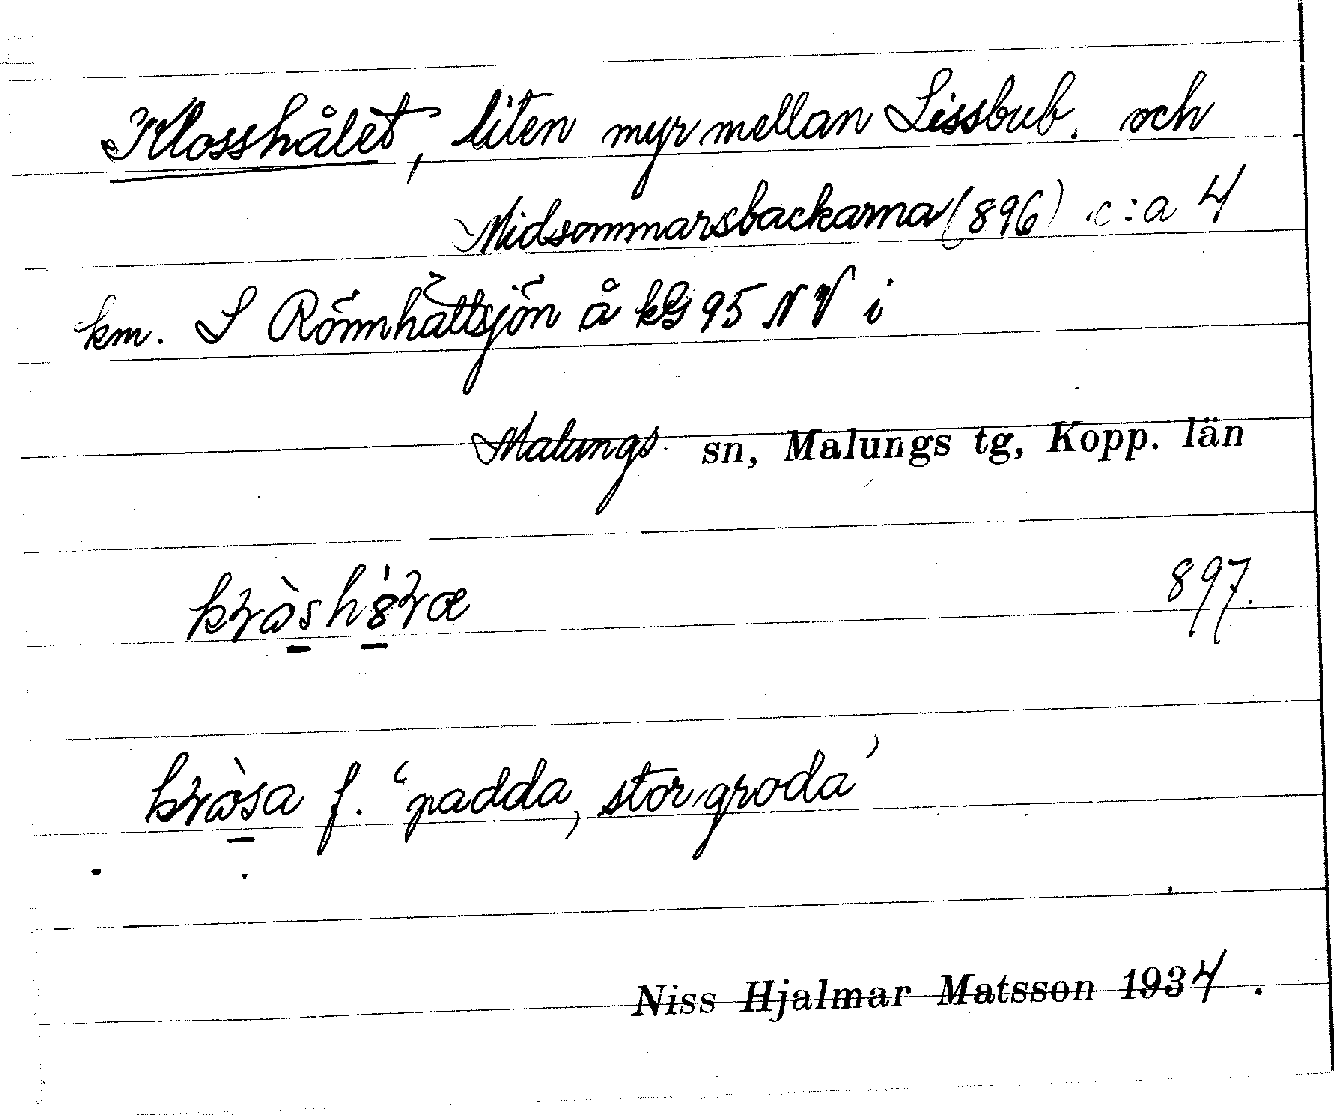 Klosshålet, liten myr mellan Lissbub. och
Midsommarsbackarna (896) c:a 4
km. S Rönnhättsjön å kG 95 NV i
Malungs sn, Malungs tg, Kopp. län
897.
f. ‘padda, stor groda’
Niss Hjalmar Matsson 1934.